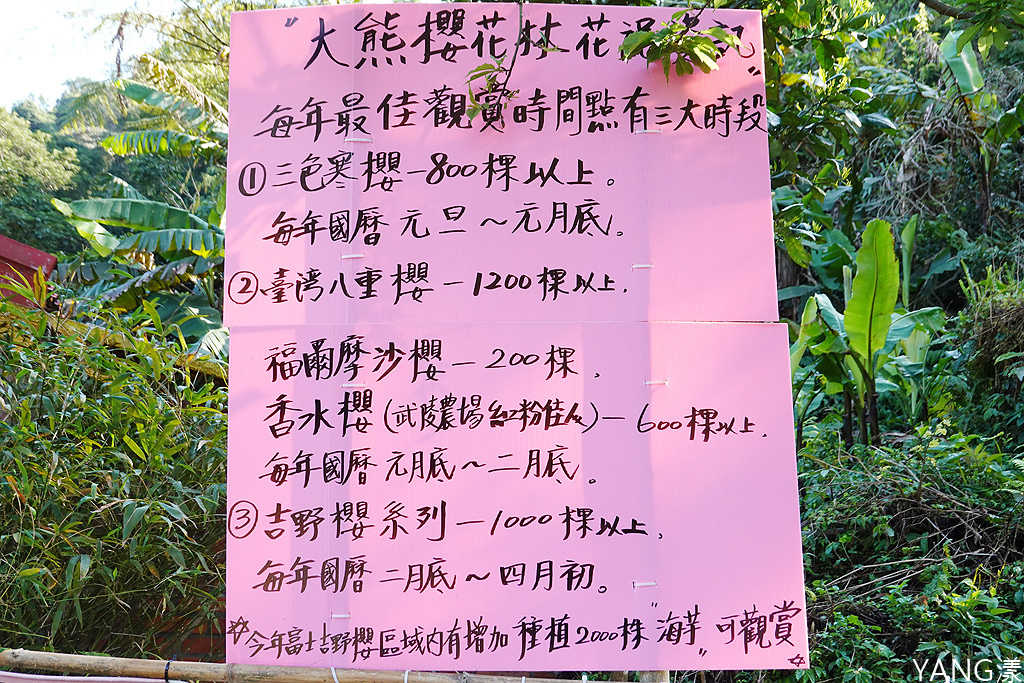 "大熊櫻花林花況筆記"
每年最佳觀賞時間點有三大時段
①三色寒櫻-800棵以上。
每年國曆元旦~元月底。
②臺灣八重櫻-1200棵以上.
福爾摩沙櫻-200棵.
香水櫻(武陵農場紅粉佳人)-600棵以上.
每年國曆元月底~二月底。
③吉野櫻系列-1000棵以上.
每年國曆二月底~四月初。
☆今年富士吉野櫻區域內有增加種植2000株"海芋"可觀賞☆
YANG漾